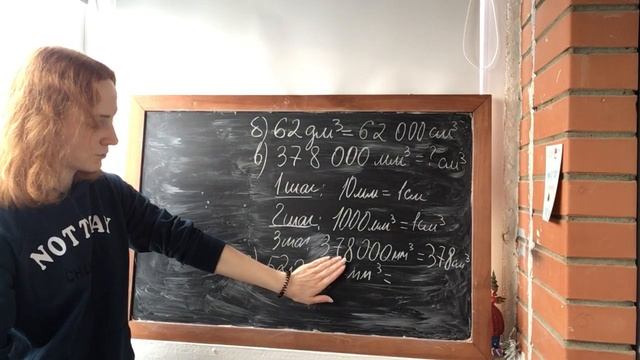 б) 62 дм³ = 62 000 см³
в) 378 000 мм³ = ? см³
1 шаг: 10 мм = 1 см
2 шаг: 1000 мм³ = 1 см³
3 шаг 378000 мм³ = 378 см³
мм³ =
NOT T AY